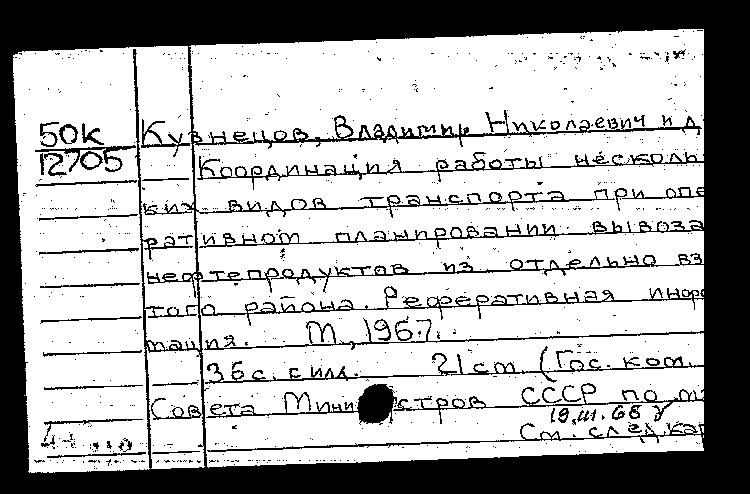 50к Кузнецов, Владимир Николаевич и д
12705 Координация работы несколь
ких видов транспорта при опе
ративном планировании вывоза
нефтепродуктов из отдельно вз
того района. Реферативная инфор
мация. М., 1967.
36 с. с илл. 21 см (Гос. ком.
Совета Министров СССР по
19.III.68
См. след. кар